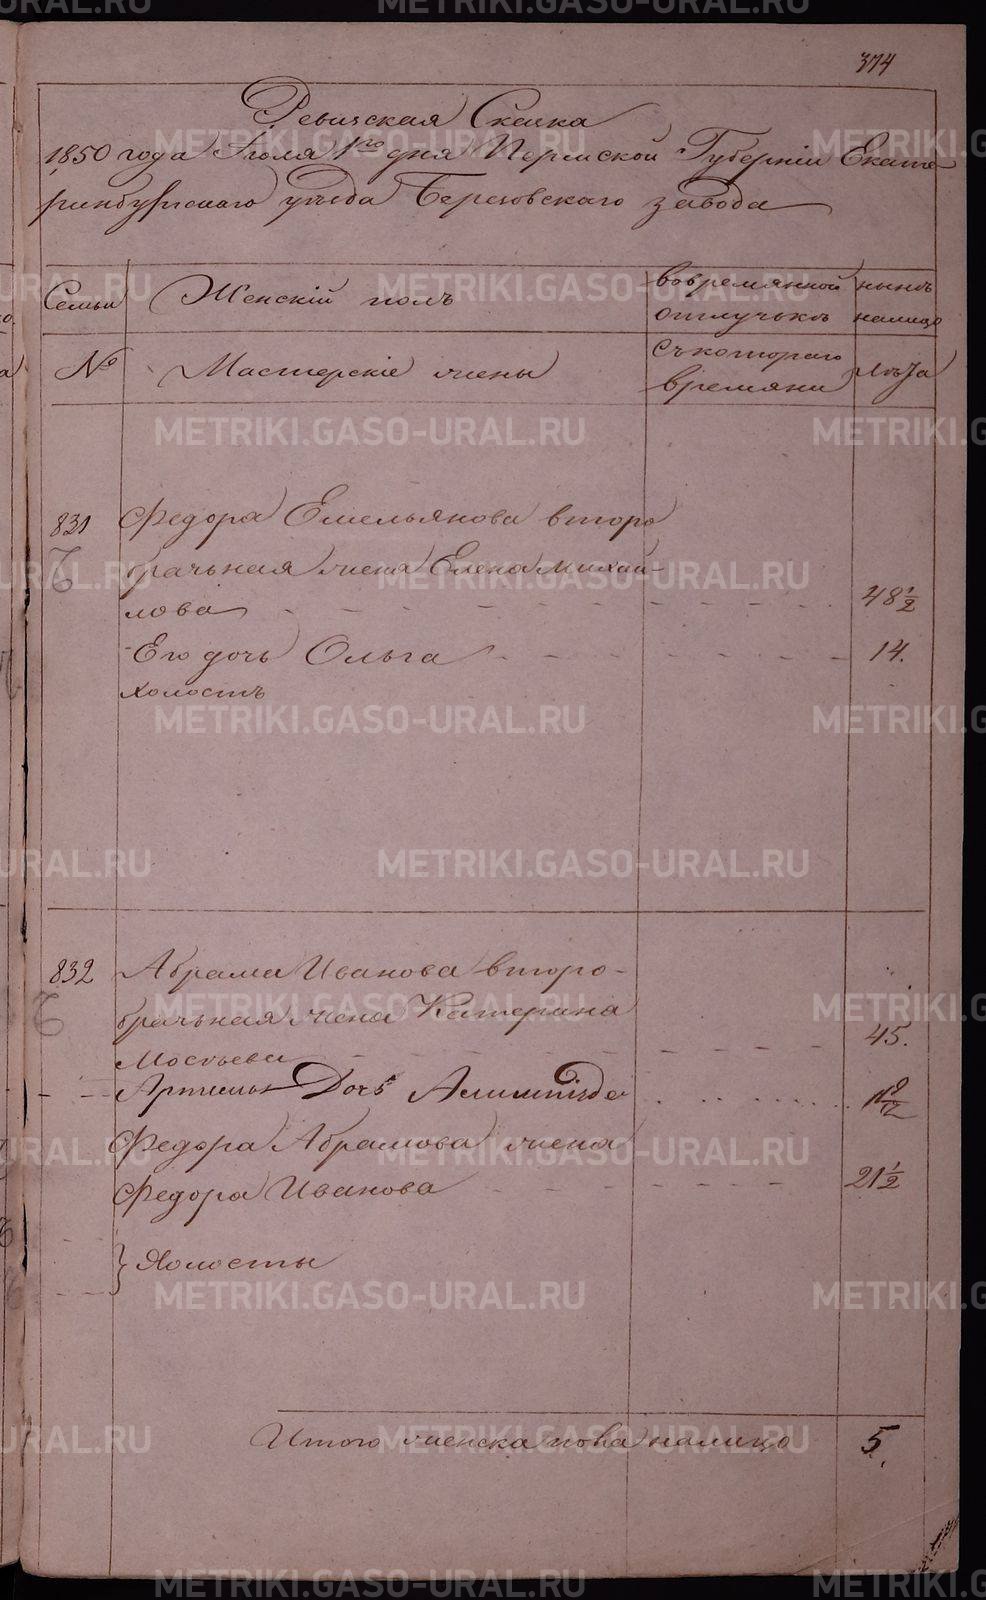 374
Ревижская Скаска
1850 года Іюля 1го дня Пермской Губерніи Екате
ринбургскаго уезда Березовскаго завода
Семьи
Женскій полъ
вовремянной
отлучькъ
нынъ
налицо
№
Мастерскіе жены
съкотораго
времяни
лъта
831
Федора Емельянова второ
брачьная жена Елена Михай-
лова
48 1/2
Его дочь Ольга
14.
холостъ
832
Абрама Иванова второ-
брачьная жена Катерина
Мосеева
45.
Артемья Дочь
Федора Абрамова жена
Федора Иванова
21 1/2
Холосты
Итого женска пола налицо
5.
METRIKI.GASO-URAL.RU